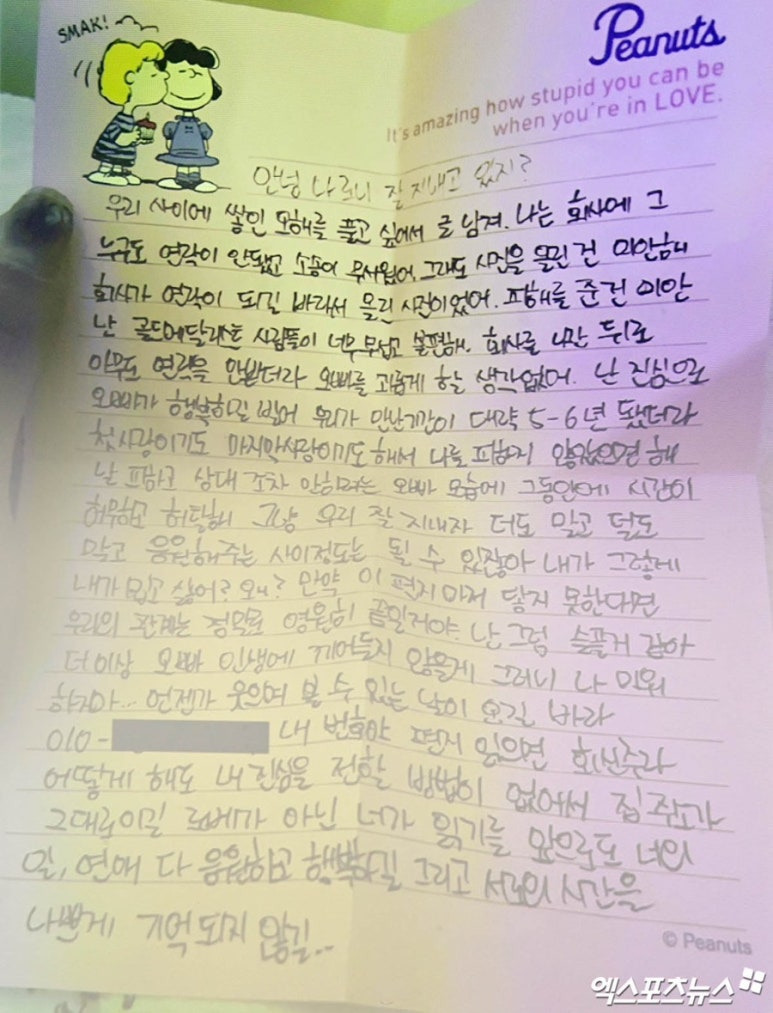 SMAK!
Peanuts
It's amazing how stupid you can be
when you're in LOVE.
안녕 나 잘 지내고 있지?
우리 사이에 쌓인 오해를 풀고 싶어서 글 남겨. 나는 회사에 그
누구도 연락이 안됐고 소송이 무서웠어. 그래도 사진을 올린 건 미안해
회사가 연락이 되길 바라서 올린 사진이었어. 피해를 준건 미안
난 골드메달리스트 사람들이 너무 무섭고 불편해. 회사를 나간 뒤로
아무도 연락을 안받더라 오빠를 괴롭게 할 생각없어. 난 진심으로
오빠가 행복하길 빌어 우리가 만난기간이 대략 5-6년 됐더라
첫사랑이기도 마지막사랑이기도해서 나를 피하지 않았으면 해
난 피하고 상대 조차 안하려는 오빠 모습에 그동안에 시간이
허무하고 허탈해 그냥 우리 잘 지내자 더도 말고 덜도
말고 응원해주는 사이정도는 될 수 있잖아 내가 그렇게
내가 밉고 싫어? 왜? 만약 이 편지마저 닿지 못한다면
우리의 관계는 정말로 영원히 끝일거야. 난 그럼 슬플거 같아
더이상 오빠 인생에 끼어들지 않을게 그러니 나 미워
하지마... 언젠가 웃으며 볼 수 있는 날이 오길 바라
010- 내 번호야 편지 읽으면 회신주라
어떻게 해도 내 진심을 전할 방법이 없어서 집 주소가
그대로이길 로베가 아닌 너가 읽기를 앞으로도 너의
일, 연애 다 응원하고 행복하길 그리고 서로의 시간을
나쁘게 기억되지 않길..
© Peanuts
엑스포츠뉴스